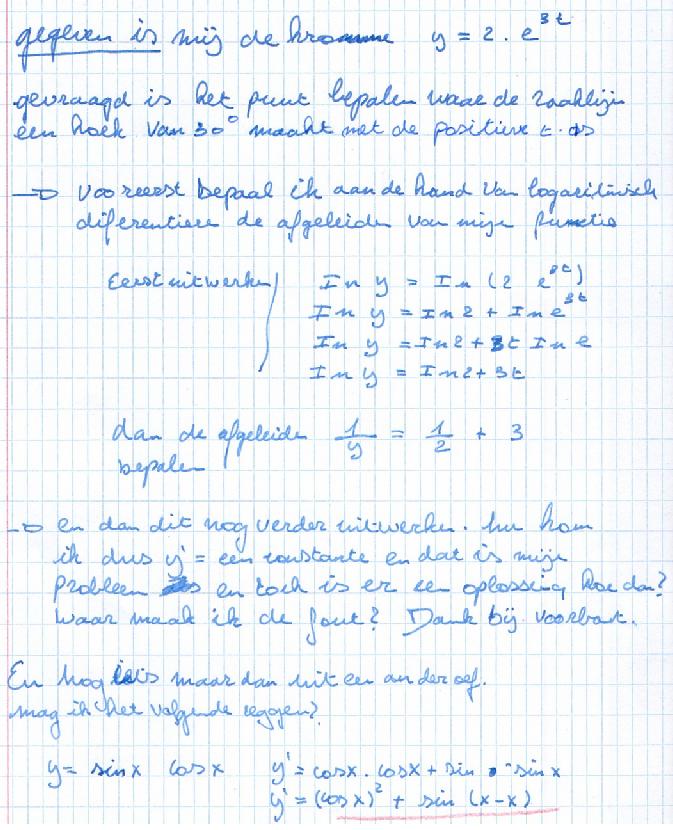 gegeven is mij de kromme y = 2 . e^{3t}
gevraagd is het punt bepalen waar de raaklijn
een hoek van 30° maakt met de positieve t. as
→ vooreerst bepaal ik aan de hand van logaritmisch
diferentiere de afgeleiden van mijn functie
Eerst uitwerken
In y = In (2 e^{3t})
In y = In 2 + In e^{3t}
In y = In 2 + 3t In e
In y = In 2 + 3t
dan de afgeleide 1/y = 1/2 + 3
bepalen
→ en dan dit nog verder uitwerken. nu kom
ik dus y' = een constante en dat is mijn
probleem en toch is er een oplossing hoe dan?
waar maak ik de fout? Dank bij voorbaat.
En nog iets maar dan uit een ander oef.
mag ik het volgende zeggen?
y = sin x cos x y' = cos x . cos x + sin . - sin x
y' = (cos x)^2 + sin (x - x)